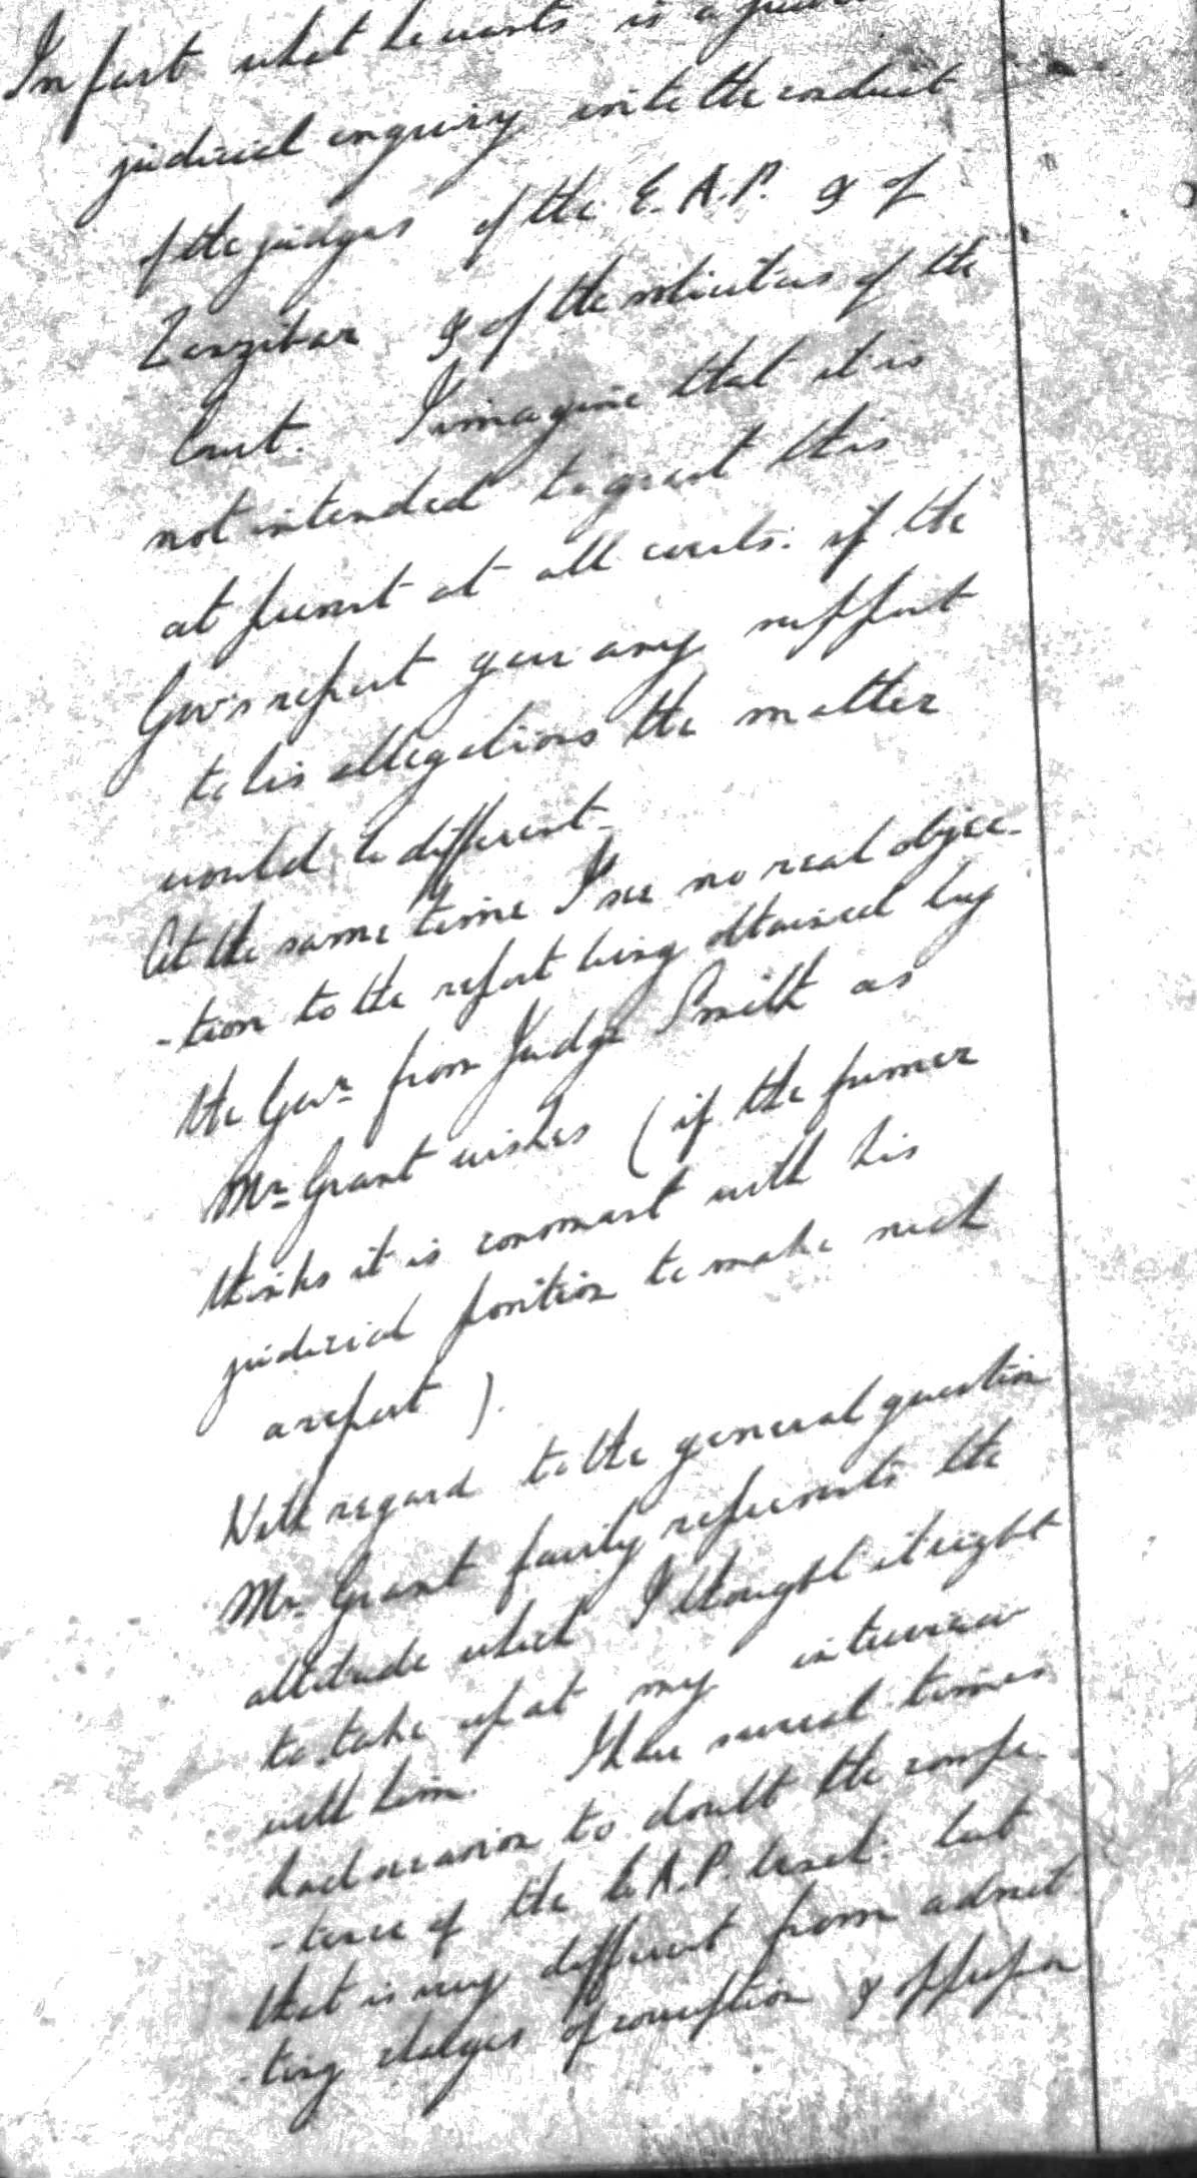 In fact what he wants is a
judicial enquiry into the conduct
of the judges of the E.A.P. & of
Zanzibar & of the solicitors of the
Court. I imagine that it is
not intended to grant this
at present at all events: if the
Govr's report gave any support
to his allegations the matter
would be different.
At the same time I see no real objec-
-tion to the report being obtained by
the Govr from Judge Smith as
Mr Grant wishes (if the former
thinks it is consonant with his
judicial position to make such
a report).
With regard to the general question
Mr. Grant fairly represents the
attitude which I thought it right
to take up at my interview
with him. I have several times
had occasion to doubt the compe-
-tence of the E.A.P. bench: but
that is very different from admit-
-ting charges of corruption &